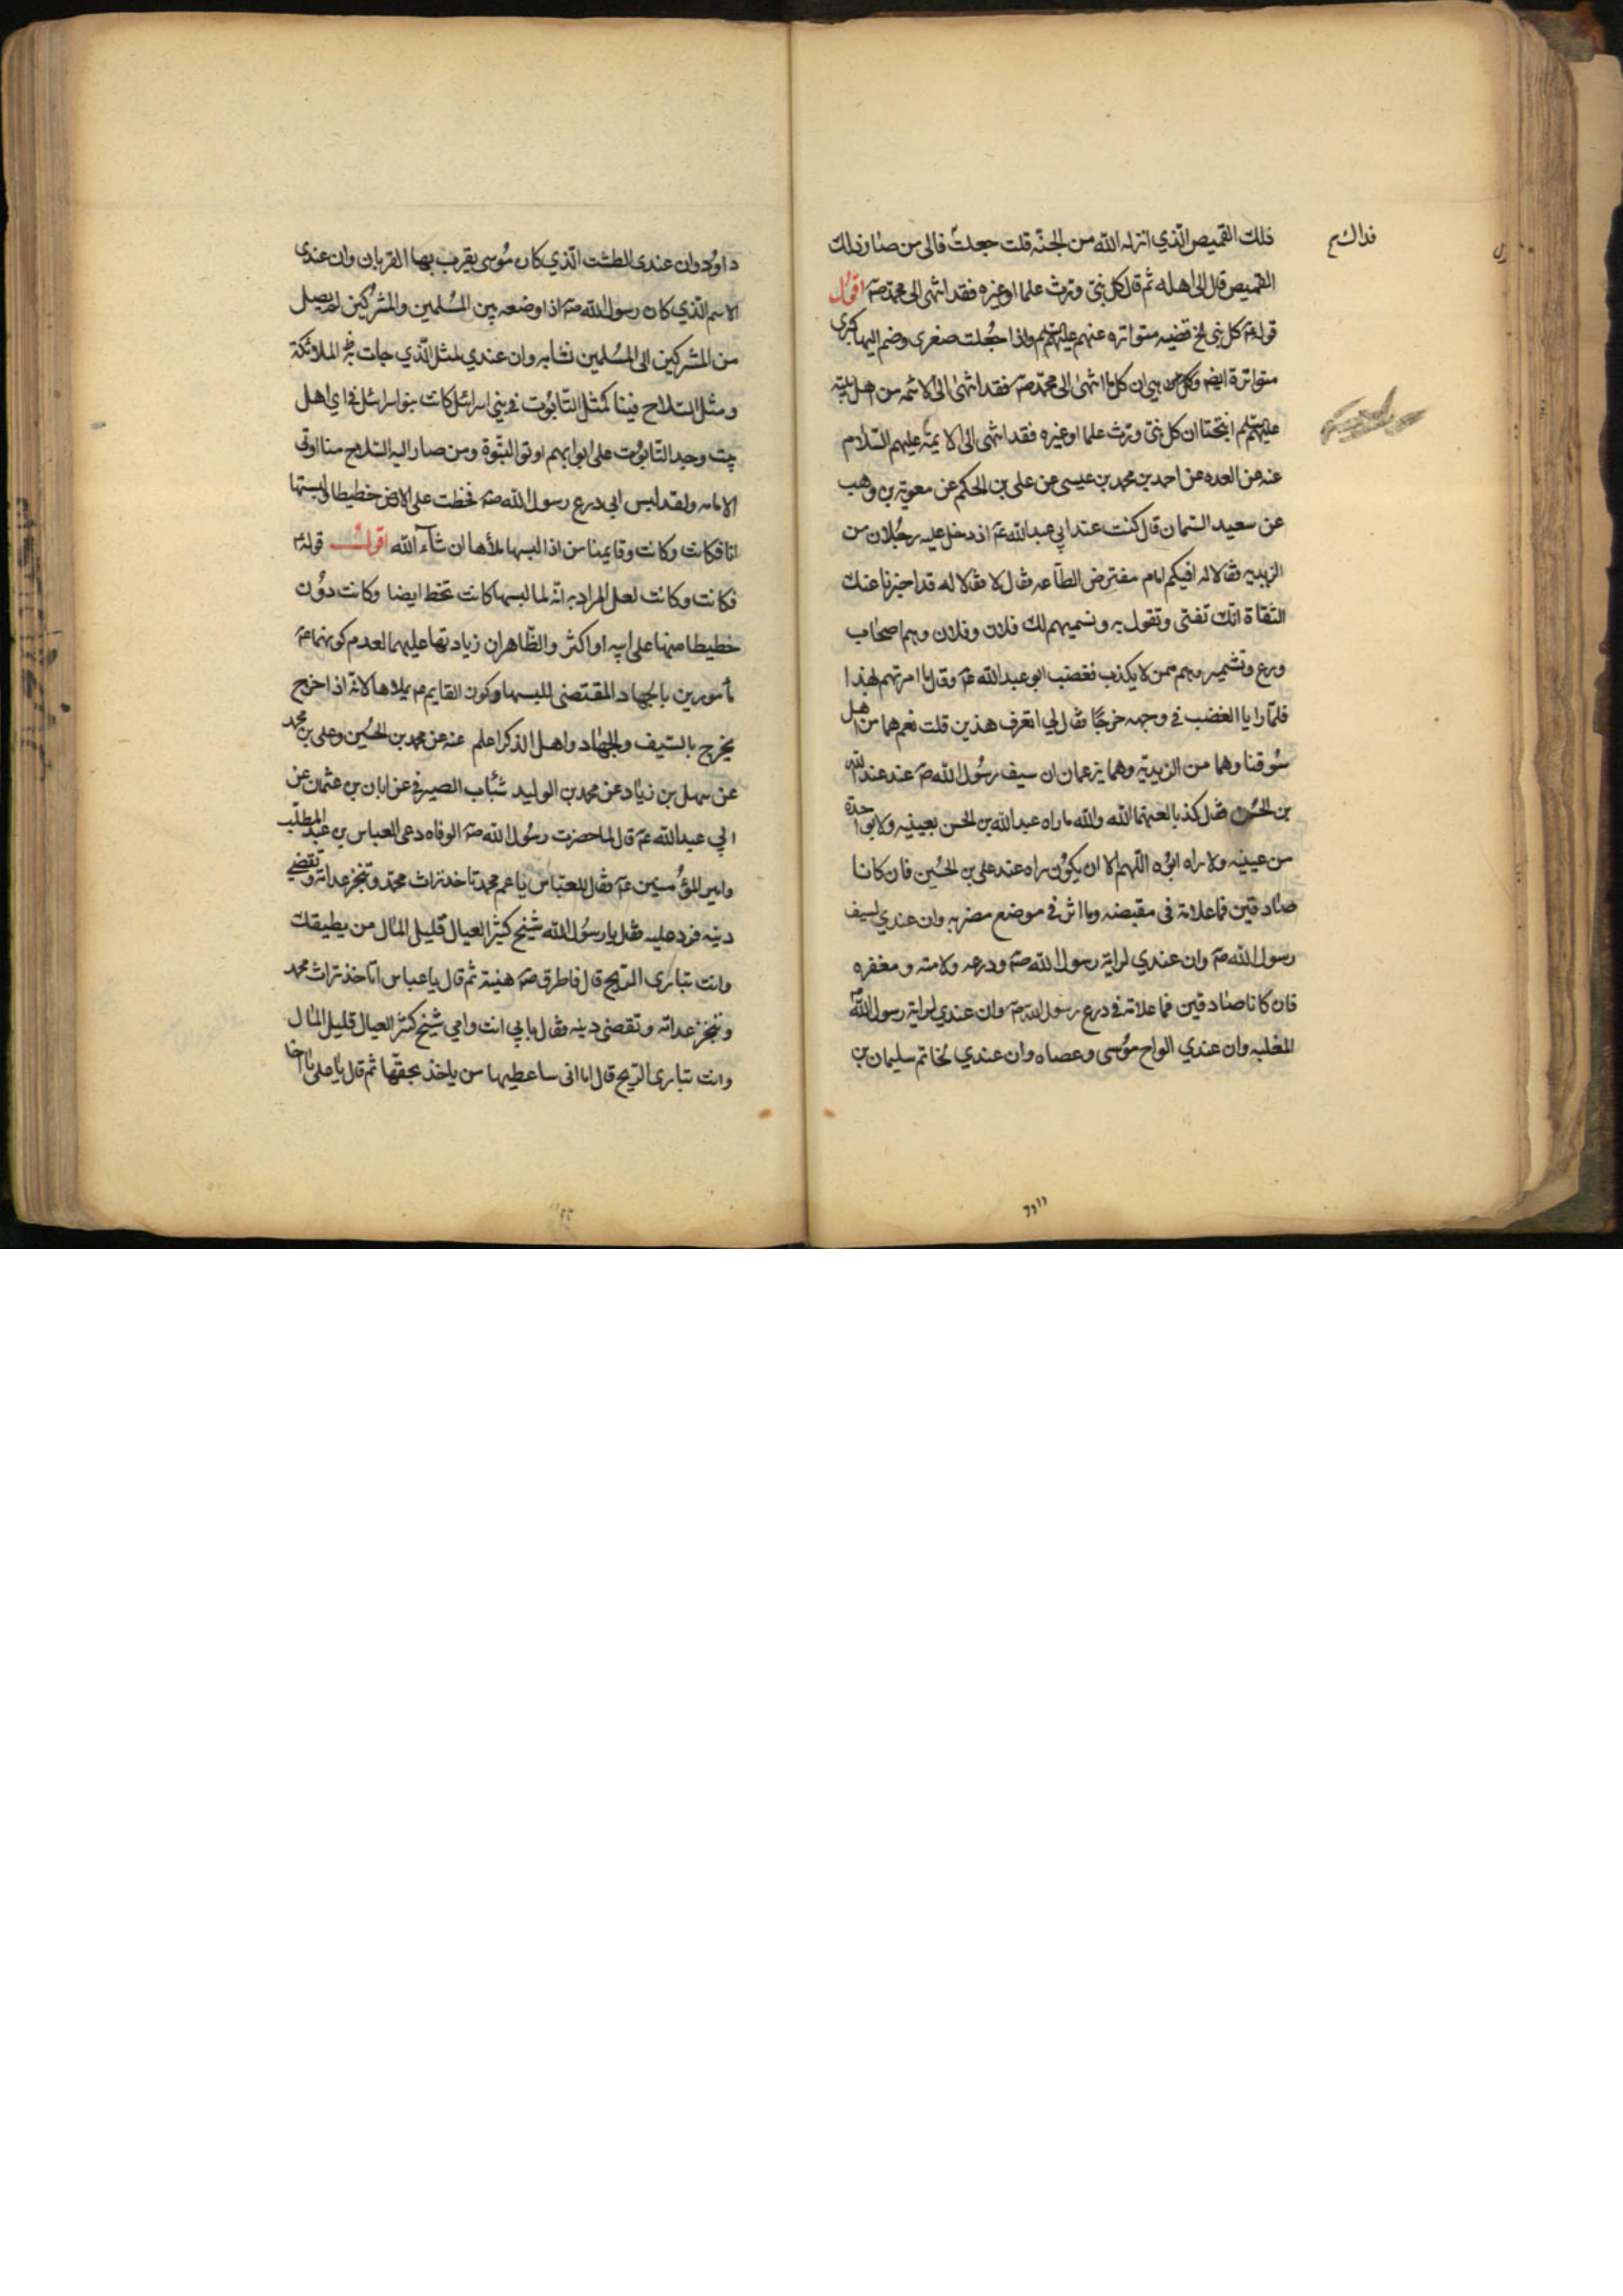 ذلك القميص الذي انزله الله من الجنه قلت جعلت فالى من صار ذلك
فداك
القميص قال الى اهله ثم قال كل نبي ورث علما او غيره فقد انتهى الى محمد صه اقول
قوله عه كل نبي الخ قضيه متواتره عنهم عليهم واذا جعلت صغرى وضم اليها كبرى
متواترة ايضا وهي ان كل ما انتهى الى محمد صه فقد انتهى الى الائمه من اهل بيته
عليهم انتجتا ان كل نبي ورث علما او غيره فقد انتهى الى الايمه عليهم السلام
عنه عن العده عن احمد بن محمد بن عيسى عن على بن الحكم عن معويه بن وهب
عن سعيد السمان قال كنت عند ابي عبد الله عه اذ دخل عليه رجلان من
الزيديه فقالا له افيكم امام مفترض الطاعه فقال لا فقالا له قد اخبرنا عنك
الثقاة انك تفتى وتقول به ونسميهم لك فلان وفلان وهم اصحاب
ورع وتشمير وهم ممن لا يكذب فغضب ابو عبد الله عه وقال ما امرتهم بهذا
فلما رايا الغضب في وجهه خرجا فقال لي اتعرف هذين قلت نعم هما من اهل
سوقنا وهما من الزيديه وهما يزعمان ان سيف رسول الله صه عند عبد الله
بن الحسن فقال كذبا لعنهما الله والله ما راه عبد الله بن الحسن بعينيه ولا بواحدة
من عينيه ولا راه ابوه اللهم الا ان يكون راه عند على بن الحسين فان كانا
صادقين فما علامة في مقبضه وما اثر في موضع مضربه وان عندي لسيف
رسول الله صه وان عندي لراية رسول الله صه ودرعه ولامته ومغفره
فان كانا صادقين فما علامة في درع رسول الله صه وان عندي لراية رسول الله
المغلبه وان عندي الواح موسى وعصاه وان عندي لخاتم سليمان بن
داود وان عندى الطشت الذي كان موسى يقرب بها القربان وان عندى
الاسم الذي كان رسول الله صه اذا وضعه بين المسلمين والمشركين لم يصل
من المشركين الى المسلمين نشابه وان عندي لمثل الذي جات به الملائكة
ومثل السلاح فينا كمثل التابوت في بني اسرائل كانت بنو اسرائل في اي اهل
بيت وجد التابوت على ابوابهم اوتوا النبوة ومن صار اليه السلاح منا اوتى
الامامه ولقد لبس ابي درع رسول الله صه فخطت على الارض خطيطا ولبستها
انا فكانت وكانت وقايمنا من اذا لبسها ملأها ان شآء الله اقول قوله
فكانت وكانت لعل المراد به انه لما لبسها كانت تخط ايضا وكانت دون
خطيطا منها على ابيه او اكثر والظاهر ان زيادتها عليهما لعدم كونهما عه
مأمورين بالجهاد المقتضى للبسها وكون القايم م يملاها لانه اذا خرج
يخرج بالسيف والجهاد واهل الذكر اعلم عنه عن محمد بن الحسين وعلى بن محمد
عن سهل بن زياد عن محمد بن الوليد شباب الصيرفي عن ابان بن عثمان عن
ابي عبد الله عه قال لما حضرت رسول الله صه الوفاه دعى العباس بن عبد المطلب
وامير المؤمنين عه فقال للعباس يا عم محمد تاخذ تراث محمد وتنجز عداته وتقضي
دينه فرد عليه فقال يا رسول الله شيخ كثير العيال قليل المال من يطيقك
وانت تبارى الريح قال فاطرق صه هنيئة ثم قال يا عباس اتاخذ تراث محمد
وتنجز عداته وتقضى دينه فقال بابي انت وامي شيخ كثير العيال قليل المال
وانت تبارى الريح قال اما انى ساعطيها من ياخذ بحقها ثم قال يا على يا اخا